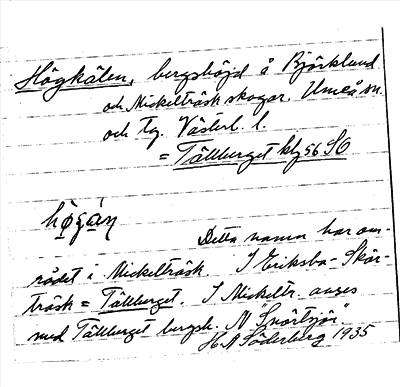 Högkälen, bergshöjd å Björklund
och Mickelträsk skogar. Umeå sn.
och tg. Västerb. l.
= Tällberget kbl 56 SO
hög
Detta namn har om-
rådet i Mickelträsk. I Eriksba-Skär-
träsk = Tällberget. I Mickeltr. anges
med Tällberget bergsh. N "Snörtsjön"
H.A Söderberg 1935